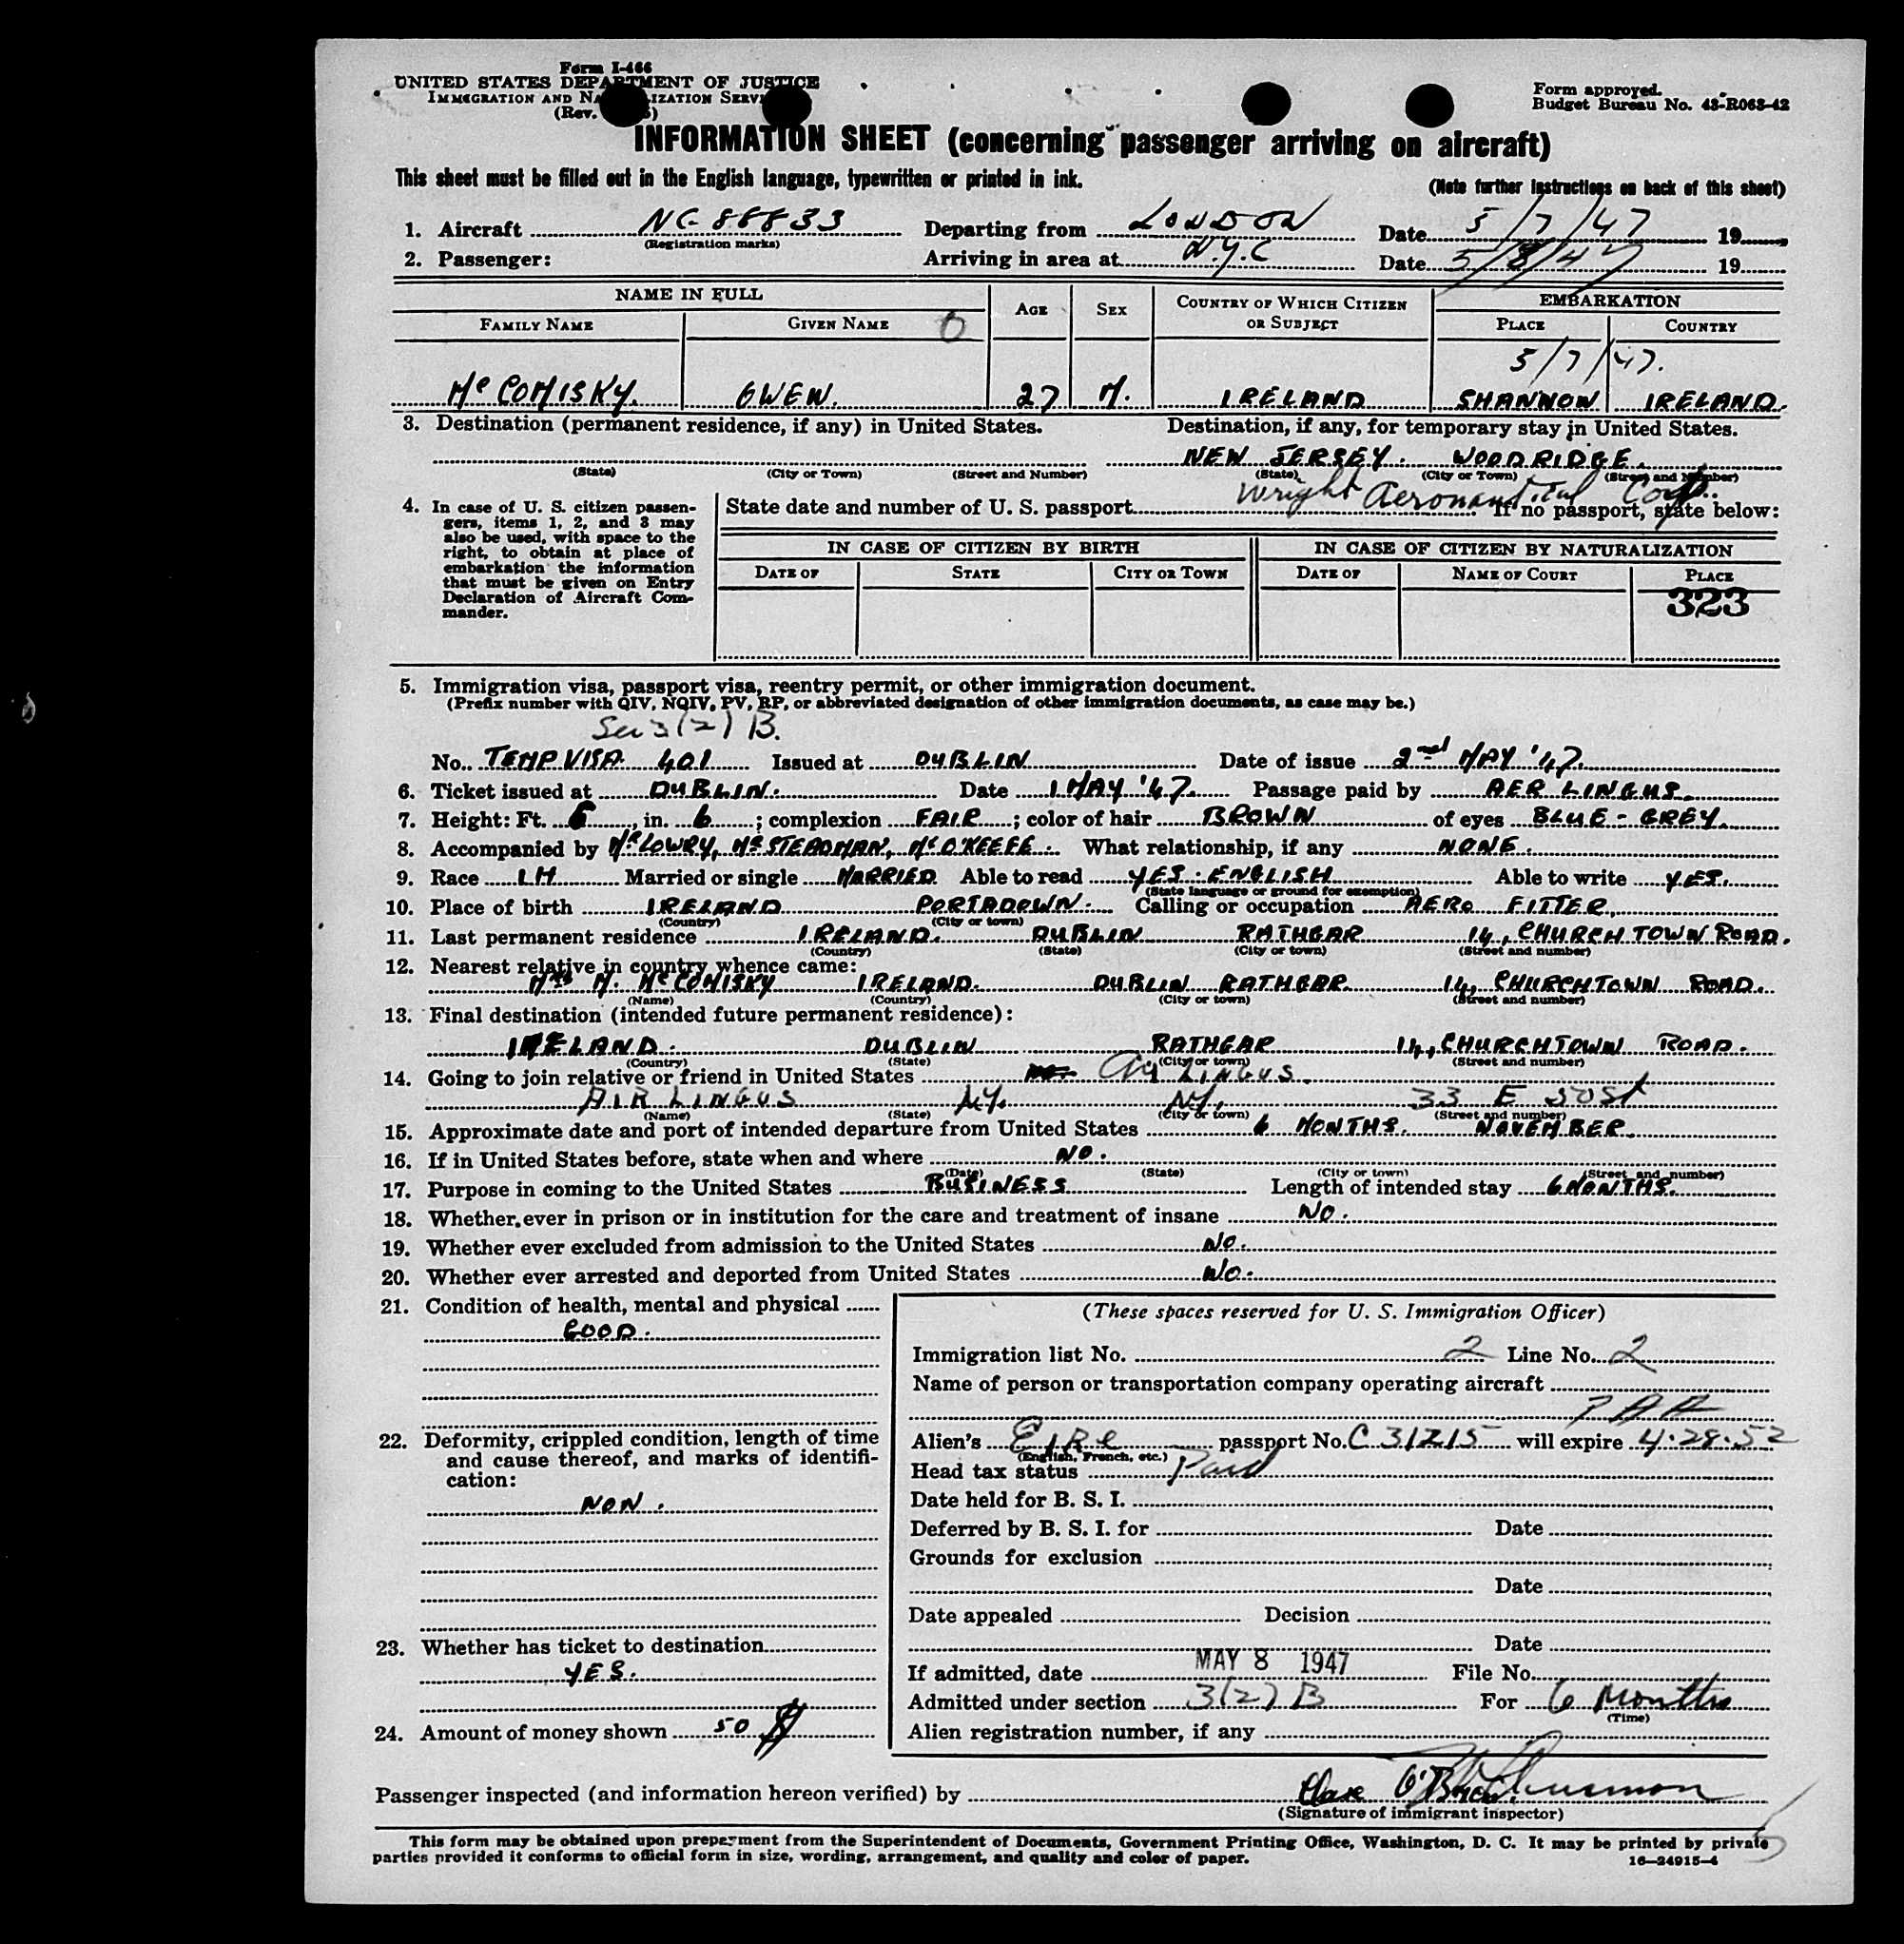 Form I-466
UNITED STATES DEPARTMENT OF JUSTICE
IMMIGRATION AND NATURALIZATION SERVICE
(Rev.
Form approved.
Budget Bureau No. 43-R063-42
INFORMATION SHEET (concerning passenger arriving on aircraft)
This sheet must be filled out in the English language, typewritten or printed in ink.
(Note further instructions on back of this sheet)
1. Aircraft NC-88833 Departing from LONDON Date 5/7/47 19
(Registration marks)
2. Passenger: Arriving in area at N.Y.C Date 5/8/47 19
NAME IN FULL AGE SEX COUNTRY OF WHICH CITIZEN OR SUBJECT EMBARKATION
FAMILY NAME GIVEN NAME O PLACE COUNTRY
5/7/47.
Mc COMISKY. OWEN. 27 M. IRELAND SHANNON IRELAND.
3. Destination (permanent residence, if any) in United States. Destination, if any, for temporary stay in United States.
NEW JERSEY. WOODRIDGE.
(State) (City or Town) (Street and Number) (State) (City or Town) (Street and Number)
Wright Aeronautical Corp.
4. In case of U. S. citizen passengers, items 1, 2, and 3 may also be used, with space to the right, to obtain at place of embarkation the information that must be given on Entry Declaration of Aircraft Commander.
State date and number of U. S. passport If no passport, state below:
IN CASE OF CITIZEN BY BIRTH IN CASE OF CITIZEN BY NATURALIZATION
DATE OF STATE CITY OR TOWN DATE OF NAME OF COURT PLACE
323
5. Immigration visa, passport visa, reentry permit, or other immigration document.
(Prefix number with QIV, NQIV, PV, RP, or abbreviated designation of other immigration documents, as case may be.)
Sec 3(2) B.
No. TEMP VISA 401 Issued at DUBLIN Date of issue 2nd MAY '47.
6. Ticket issued at DUBLIN. Date 1 MAY '47. Passage paid by AER LINGUS.
7. Height: Ft. 5, in. 6; complexion FAIR; color of hair BROWN of eyes BLUE-GREY.
8. Accompanied by Mr LOWRY, Mr STEADMAN, Mr O'KEEFE. What relationship, if any NONE.
9. Race I.H Married or single MARRIED Able to read YES: ENGLISH Able to write YES.
(State language or ground for exemption)
10. Place of birth IRELAND PORTADOWN. Calling or occupation AERO FITTER,
(Country) (City or town)
11. Last permanent residence IRELAND. DUBLIN RATHGAR 14, CHURCHTOWN ROAD.
(Country) (State) (City or town) (Street and number)
12. Nearest relative in country whence came:
Mrs M. McCOMISKY IRELAND. DUBLIN RATHGAR 14, CHURCHTOWN ROAD.
(Name) (Country) (City or town) (Street and number)
13. Final destination (intended future permanent residence):
IRELAND. DUBLIN RATHGAR 14, CHURCHTOWN ROAD.
(Country) (State) (City or town) (Street and number)
14. Going to join relative or friend in United States LINGUS.
AIR LINGUS N.Y. N.Y. 33 E 50st
(Name) (State) (City or town) (Street and number)
15. Approximate date and port of intended departure from United States 6 MONTHS. NOVEMBER.
16. If in United States before, state when and where NO.
(Date) (State) (City or town) (Street and number)
17. Purpose in coming to the United States BUSINESS Length of intended stay 6 MONTHS.
18. Whether ever in prison or in institution for the care and treatment of insane NO.
19. Whether ever excluded from admission to the United States NO.
20. Whether ever arrested and deported from United States NO.
21. Condition of health, mental and physical
GOOD.
22. Deformity, crippled condition, length of time and cause thereof, and marks of identification:
NON.
23. Whether has ticket to destination
YES.
24. Amount of money shown 50 $
(These spaces reserved for U. S. Immigration Officer)
Immigration list No. 2 Line No. 2
Name of person or transportation company operating aircraft
PAA
Alien's Eire passport No. C 31215 will expire 4-28-52
(English, French, etc.)
Head tax status Paid
Date held for B. S. I.
Deferred by B. S. I. for Date
Grounds for exclusion
Date
Date appealed Decision
Date
If admitted, date MAY 8 1947 File No.
Admitted under section 3(2) B For 6 Months
(Time)
Alien registration number, if any
Passenger inspected (and information hereon verified) by
(Signature of immigrant inspector)
This form may be obtained upon prepayment from the Superintendent of Documents, Government Printing Office, Washington, D. C. It may be printed by private
parties provided it conforms to official form in size, wording, arrangement, and quality and color of paper.
16—24915-4